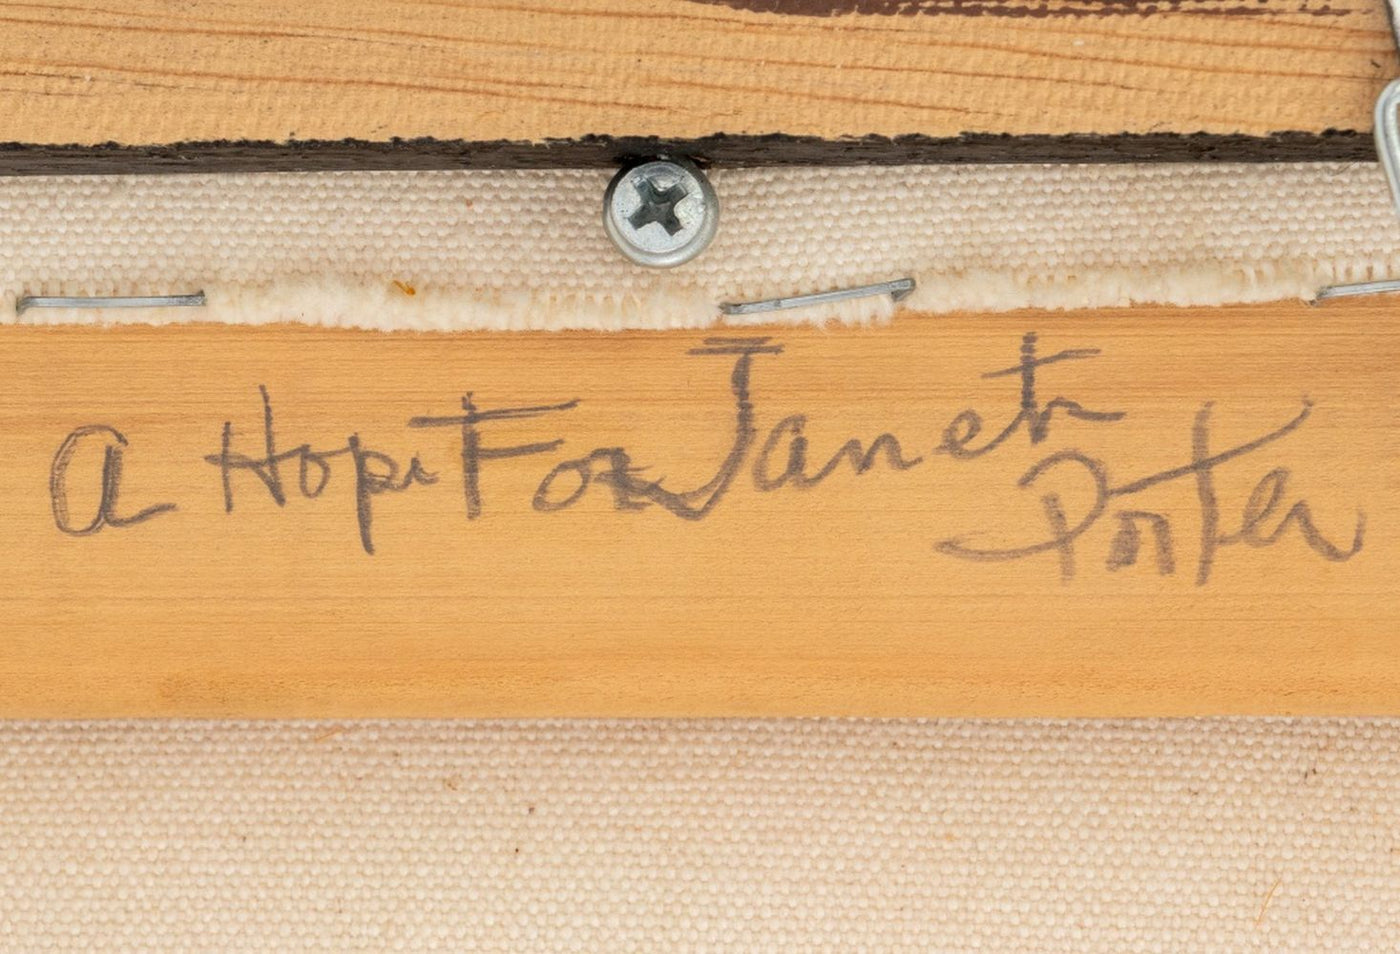 a Hopi For Janet
Porter